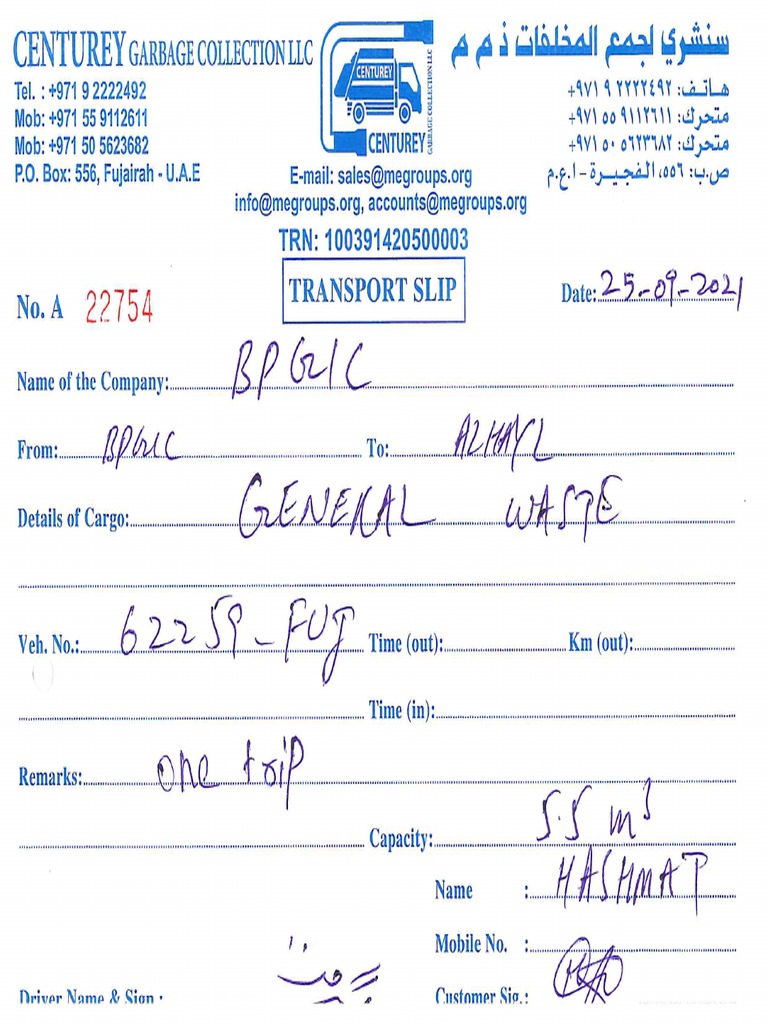 CENTUREY GARBAGE COLLECTION LLC
سنشري لجمع المخلفات ذ م م
CENTUREY
CENTUREY
GARBAGE COLLECTION LLC
Tel. : +971 9 2222492
هاتف: ٢٢٢٢٤٩٢ ٩ ٩٧١+
Mob: +971 55 9112611
متحرك: ٩١١٢٦١١ ٥٥ ٩٧١+
Mob: +971 50 5623682
متحرك: ٥٦٢٣٦٨٢ ٥٠ ٩٧١+
P.O. Box: 556, Fujairah - U.A.E
ص.ب: ٥٥٦، الفجيرة - ا.ع.م
E-mail: sales@megroups.org
info@megroups.org, accounts@megroups.org
TRN: 100391420500003
No. A 22754 TRANSPORT SLIP Date: 25-09-2021
Name of the Company: BPGIC
From: BPGIC To: ALHAYL
Details of Cargo: GENERAL WASTE
Veh. No.: 62259-FUJ Time (out): Km (out):
Time (in):
Remarks: one trip
Capacity: 5.5 m³
Name : HASHMAT
Mobile No. :
Driver Name & Sign : Customer Sig.: